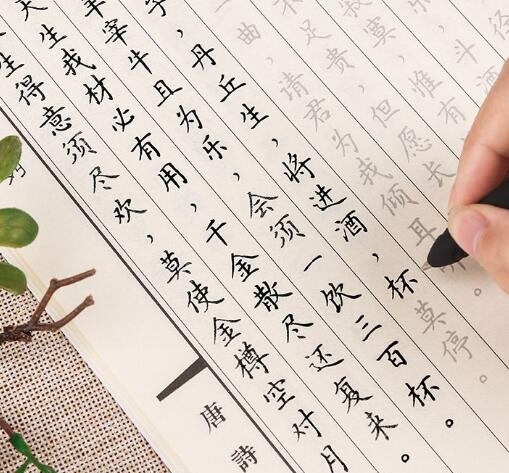 生得意须尽欢，莫使金樽空对月
天生我材必有用，千金散尽还复来。
宰牛且为乐，会须一饮三百杯。
，丹丘生，将进酒，杯莫停。
曲，请君为我倾耳
足贵，但愿长
寂寞，惟有
乐，斗酒
径
唐詩